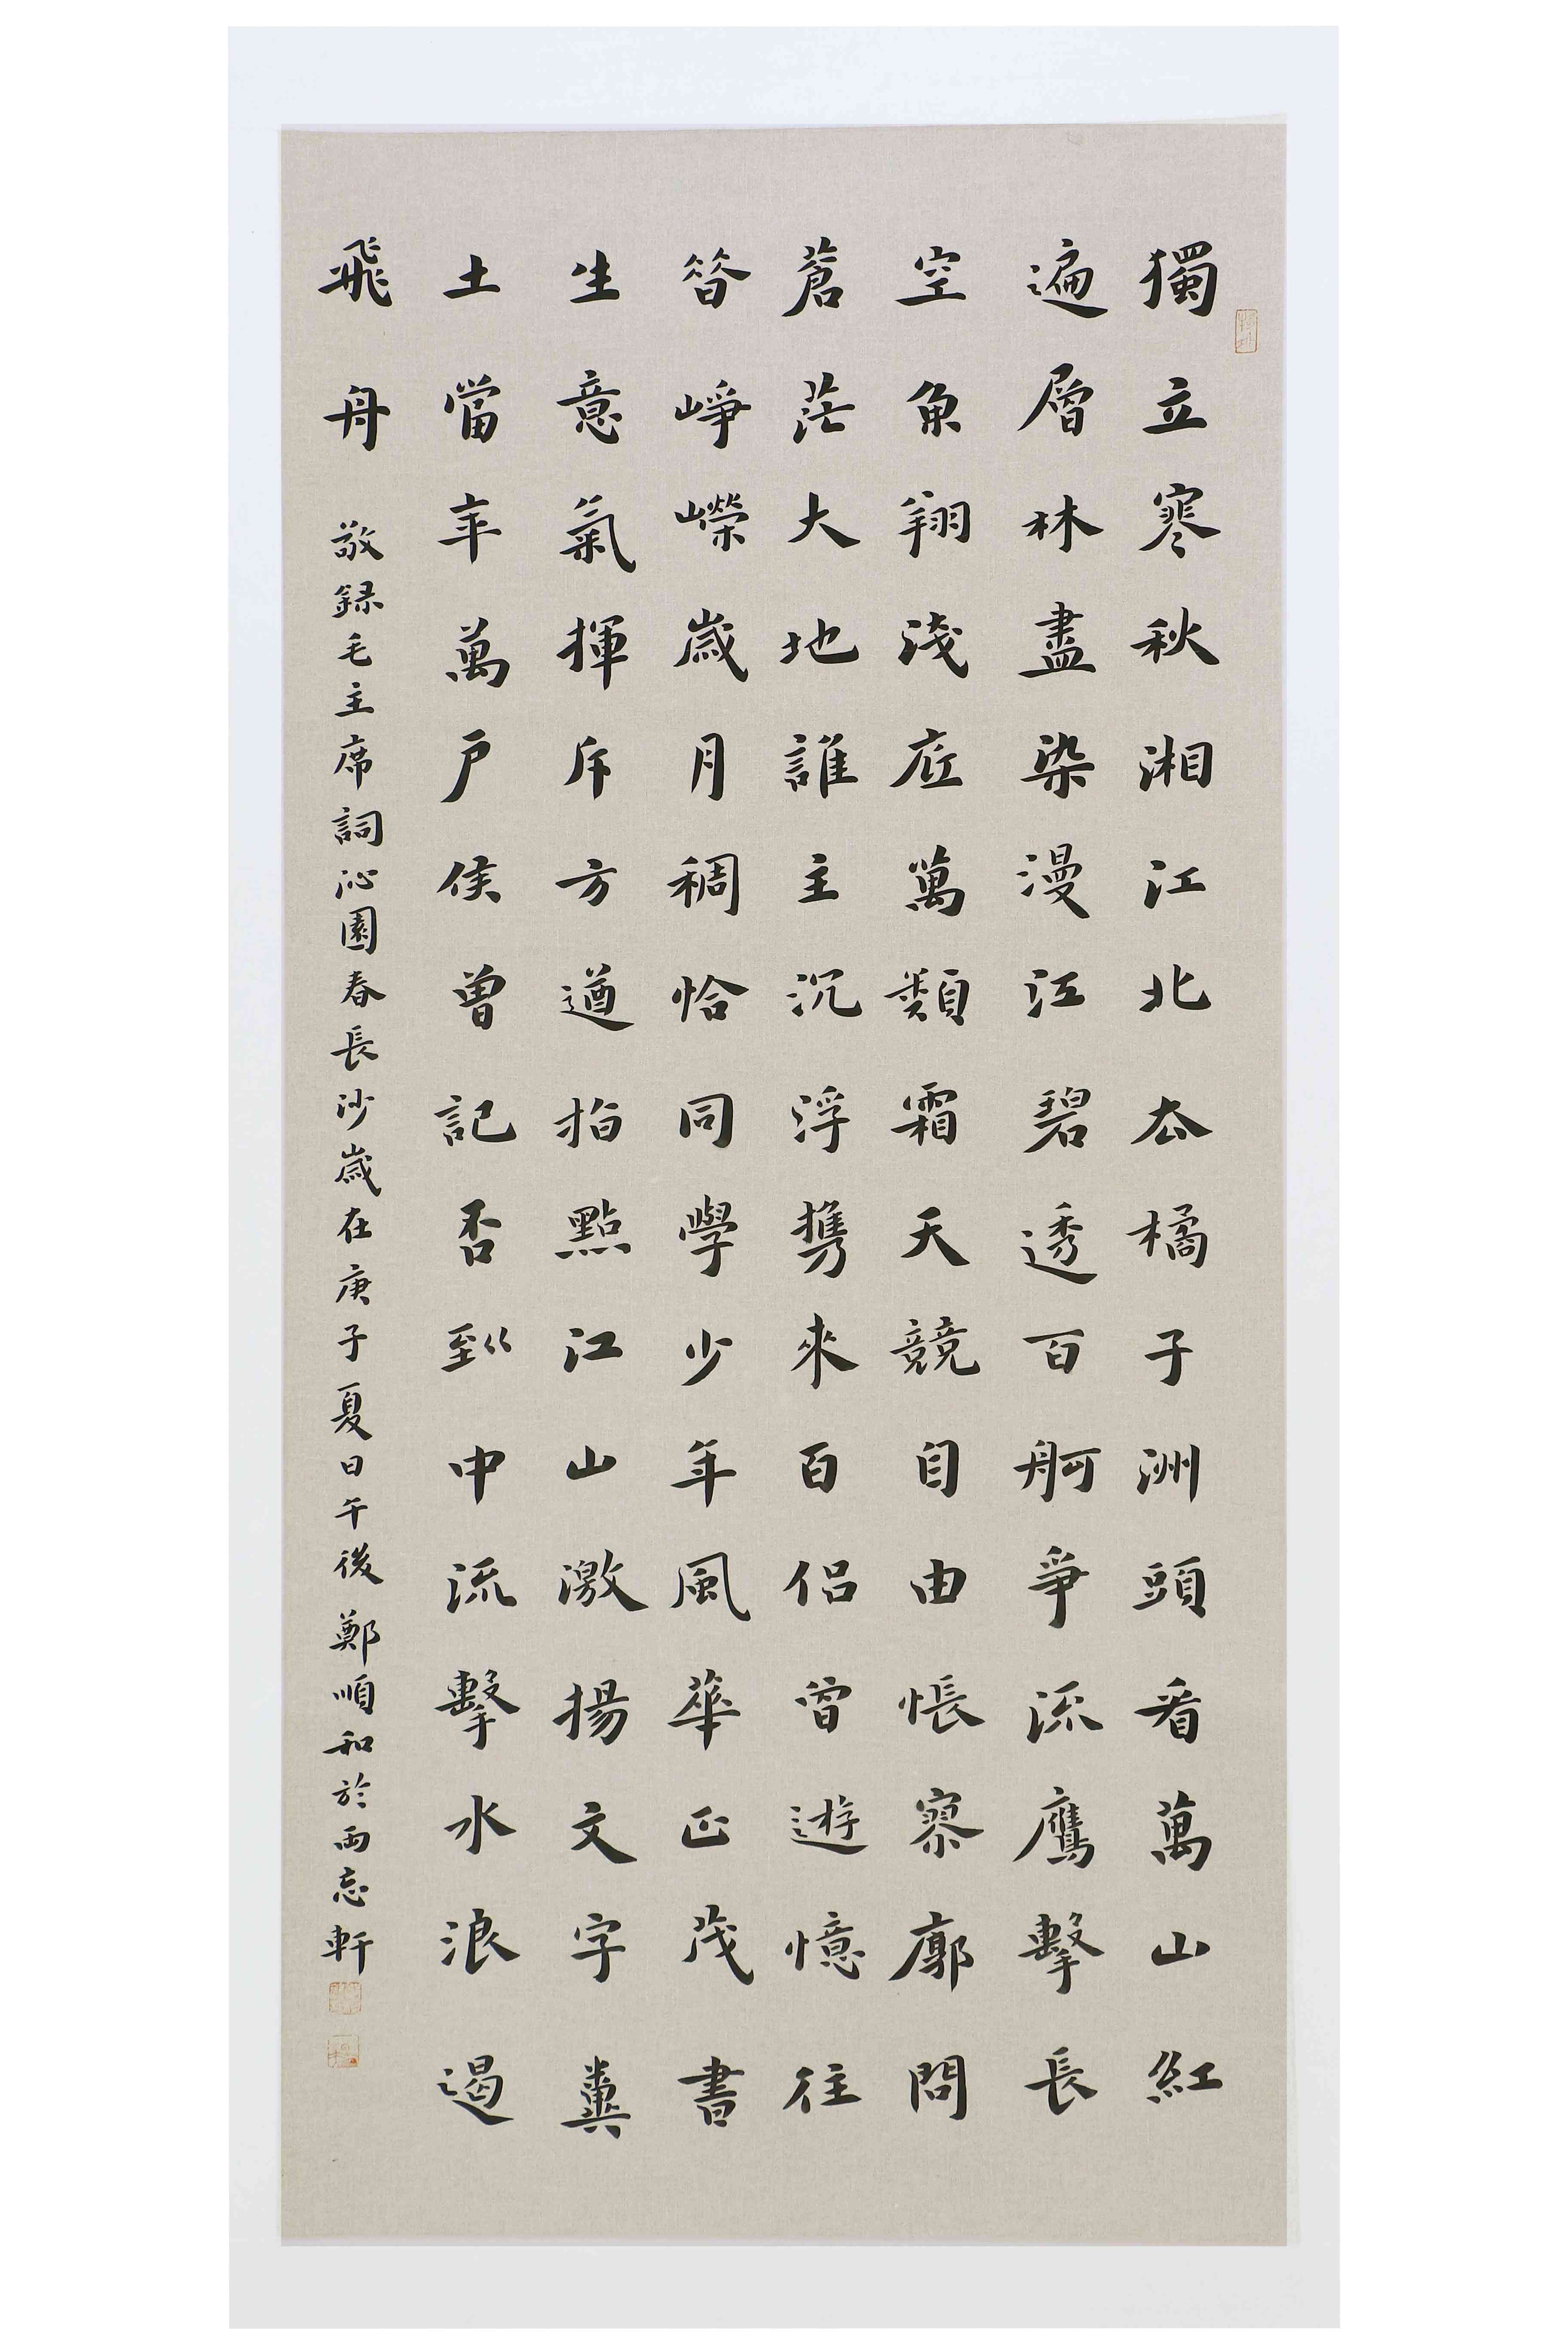 獨立寒秋湘江北去橘子洲頭看萬山紅
遍層林盡染漫江碧透百舸爭流鷹擊長
空魚翔淺底萬類霜天競自由悵寥廓問
蒼茫大地誰主沉浮携來百侶曾遊憶往
昔崢嶸歲月稠恰同學少年風華正茂書
生意氣揮斥方遒指點江山激揚文字糞
土當年萬戶侯曾記否到中流擊水浪遏
飛舟 敬録毛主席詞沁園春長沙歲在庚子夏日午後鄭順和於兩忘軒